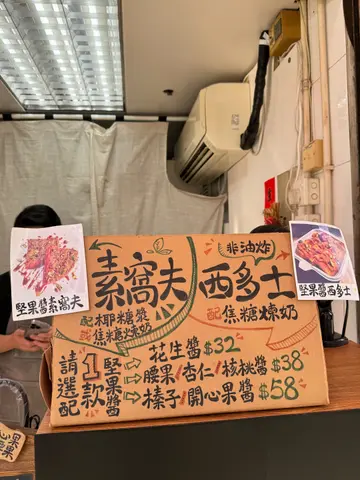 非油炸
素窩夫
西多士
配椰糖漿
或焦糖煉奶
配焦糖煉奶
請選配1款堅果醬
花生醬$32
腰果/杏仁/核桃醬$38
榛子/開心果醬$58
堅果醬素窩夫
堅果醬西多士